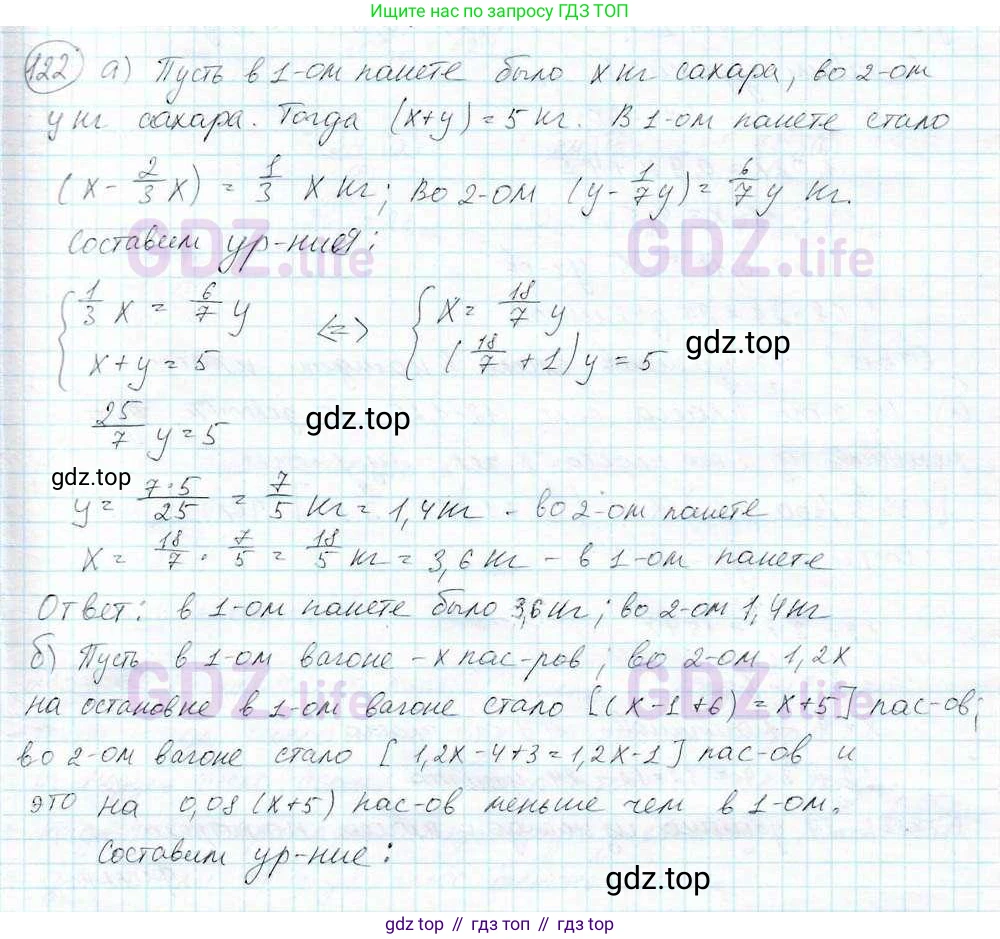 Ищите нас по запросу ГДЗ ТОП
122 а) Пусть в 1-ом пакете было х кг сахара, во 2-ом
у кг сахара. Тогда (х+у) = 5 кг. В 1-ом пакете стало
(х - 2/3 х) = 1/3 х кг; во 2-ом (у - 1/7 у) = 6/7 у кг.
Составим ур-ния:
GDZ.life GDZ.life
{ 1/3 х = 6/7 у <=> { х = 18/7 у
х+у = 5 (18/7 + 1)у = 5
gdz.top
25/7 у = 5
gdz.top
gdz.top
у = 7·5/25 = 7/5 кг = 1,4 кг - во 2-ом пакете
х = 18/7 · 7/5 = 18/5 кг = 3,6 кг - в 1-ом пакете
Ответ: в 1-ом пакете было 3,6 кг; во 2-ом 1,4 кг
б) Пусть в 1-ом вагоне - х пас-ров; во 2-ом 1,2х
GDZ.life GDZ.life
на остановке в 1-ом вагоне стало [(х-1+6) = х+5] пас-ов;
во 2-ом вагоне стало [1,2х-4+3=1,2х-1] пас-ов и
это на 0,08 (х+5) пас-ов меньше чем в 1-ом.
Составим ур-ние:
gdz.top
gdz top // гдз топ // gdz top